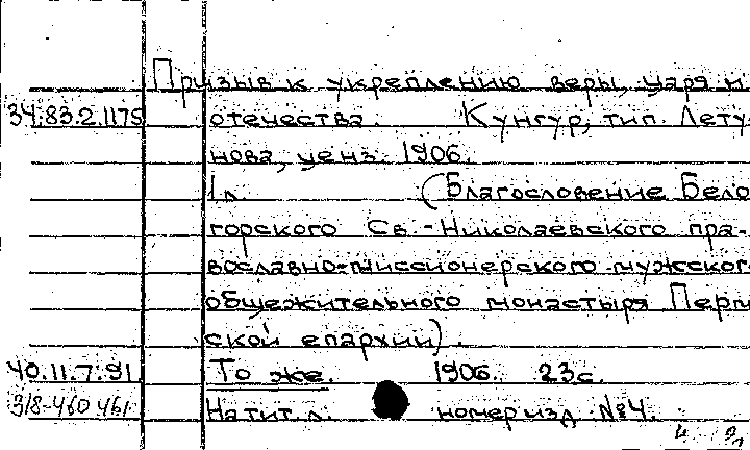 Призыв к укреплению веры, царя и
34.83.2.1175 отечества. Кунгур, тип. Лету-
нова, ценз. 1906.
1 л. (Благословение Бело-
горского Св.-Николаевского пра-
вославно-миссионерского мужского
общежительного монастыря Перм
ской епархии).
40.11.7.91. То же. 1906. 23 с.
318-460 461 На тит. л. номер изд. №4.